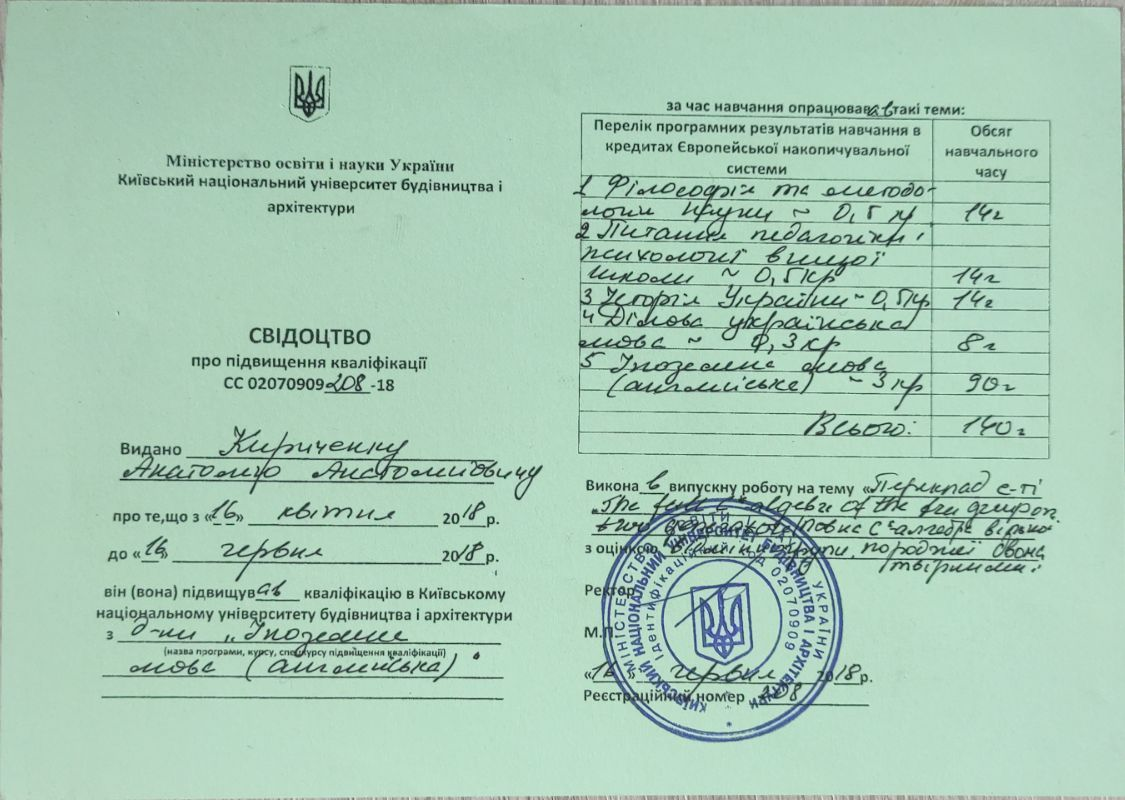 Міністерство освіти і науки України
Київський національний університет будівництва і
архітектури
СВІДОЦТВО
про підвищення кваліфікації
СС 02070909 208 -18
Видано Кириченку
Анатолію Анатолійовичу
про те,що з «16» квітня 2018р.
до «16» червня 2018р.
він (вона) підвищував кваліфікацію в Київському
національному університету будівництва і архітектури
з д-ни „Іноземна
(назва програми, курсу, спецкурсу підвищення кваліфікації)
мова (англійська)
за час навчання опрацював такі теми:
Перелік програмних результатів навчання в
кредитах Європейської накопичувальної
системи
Обсяг
навчального
часу
1 Філософія та методо-
логія науки ~ 0,5 кр 14г
2 Питання педагогіки і
психології вищої
школи ~ 0,5кр 14г
3 Історія України ~ 0,5кр 14г
4 Ділова українська
мова ~ 0,3 кр 8г
5 Іноземна мова
(англійська) ~ 3 кр 90г
Всього: 140г
Виконав випускну роботу на тему «Переклад с-ті
The full C* algebra of the free group
C* алгебра вільної
з оцінкою Відмінно групи породженої двома
твірними.
Ректор
М.П.
«16» червня 2018р.
Реєстраційний номер 208
МІНІСТЕРСТВО ОСВІТИ І НАУКИ УКРАЇНИ
КИЇВСЬКИЙ НАЦІОНАЛЬНИЙ УНІВЕРСИТЕТ БУДІВНИЦТВА І АРХІТЕКТУРИ
Ідентифікаційний код 02070909